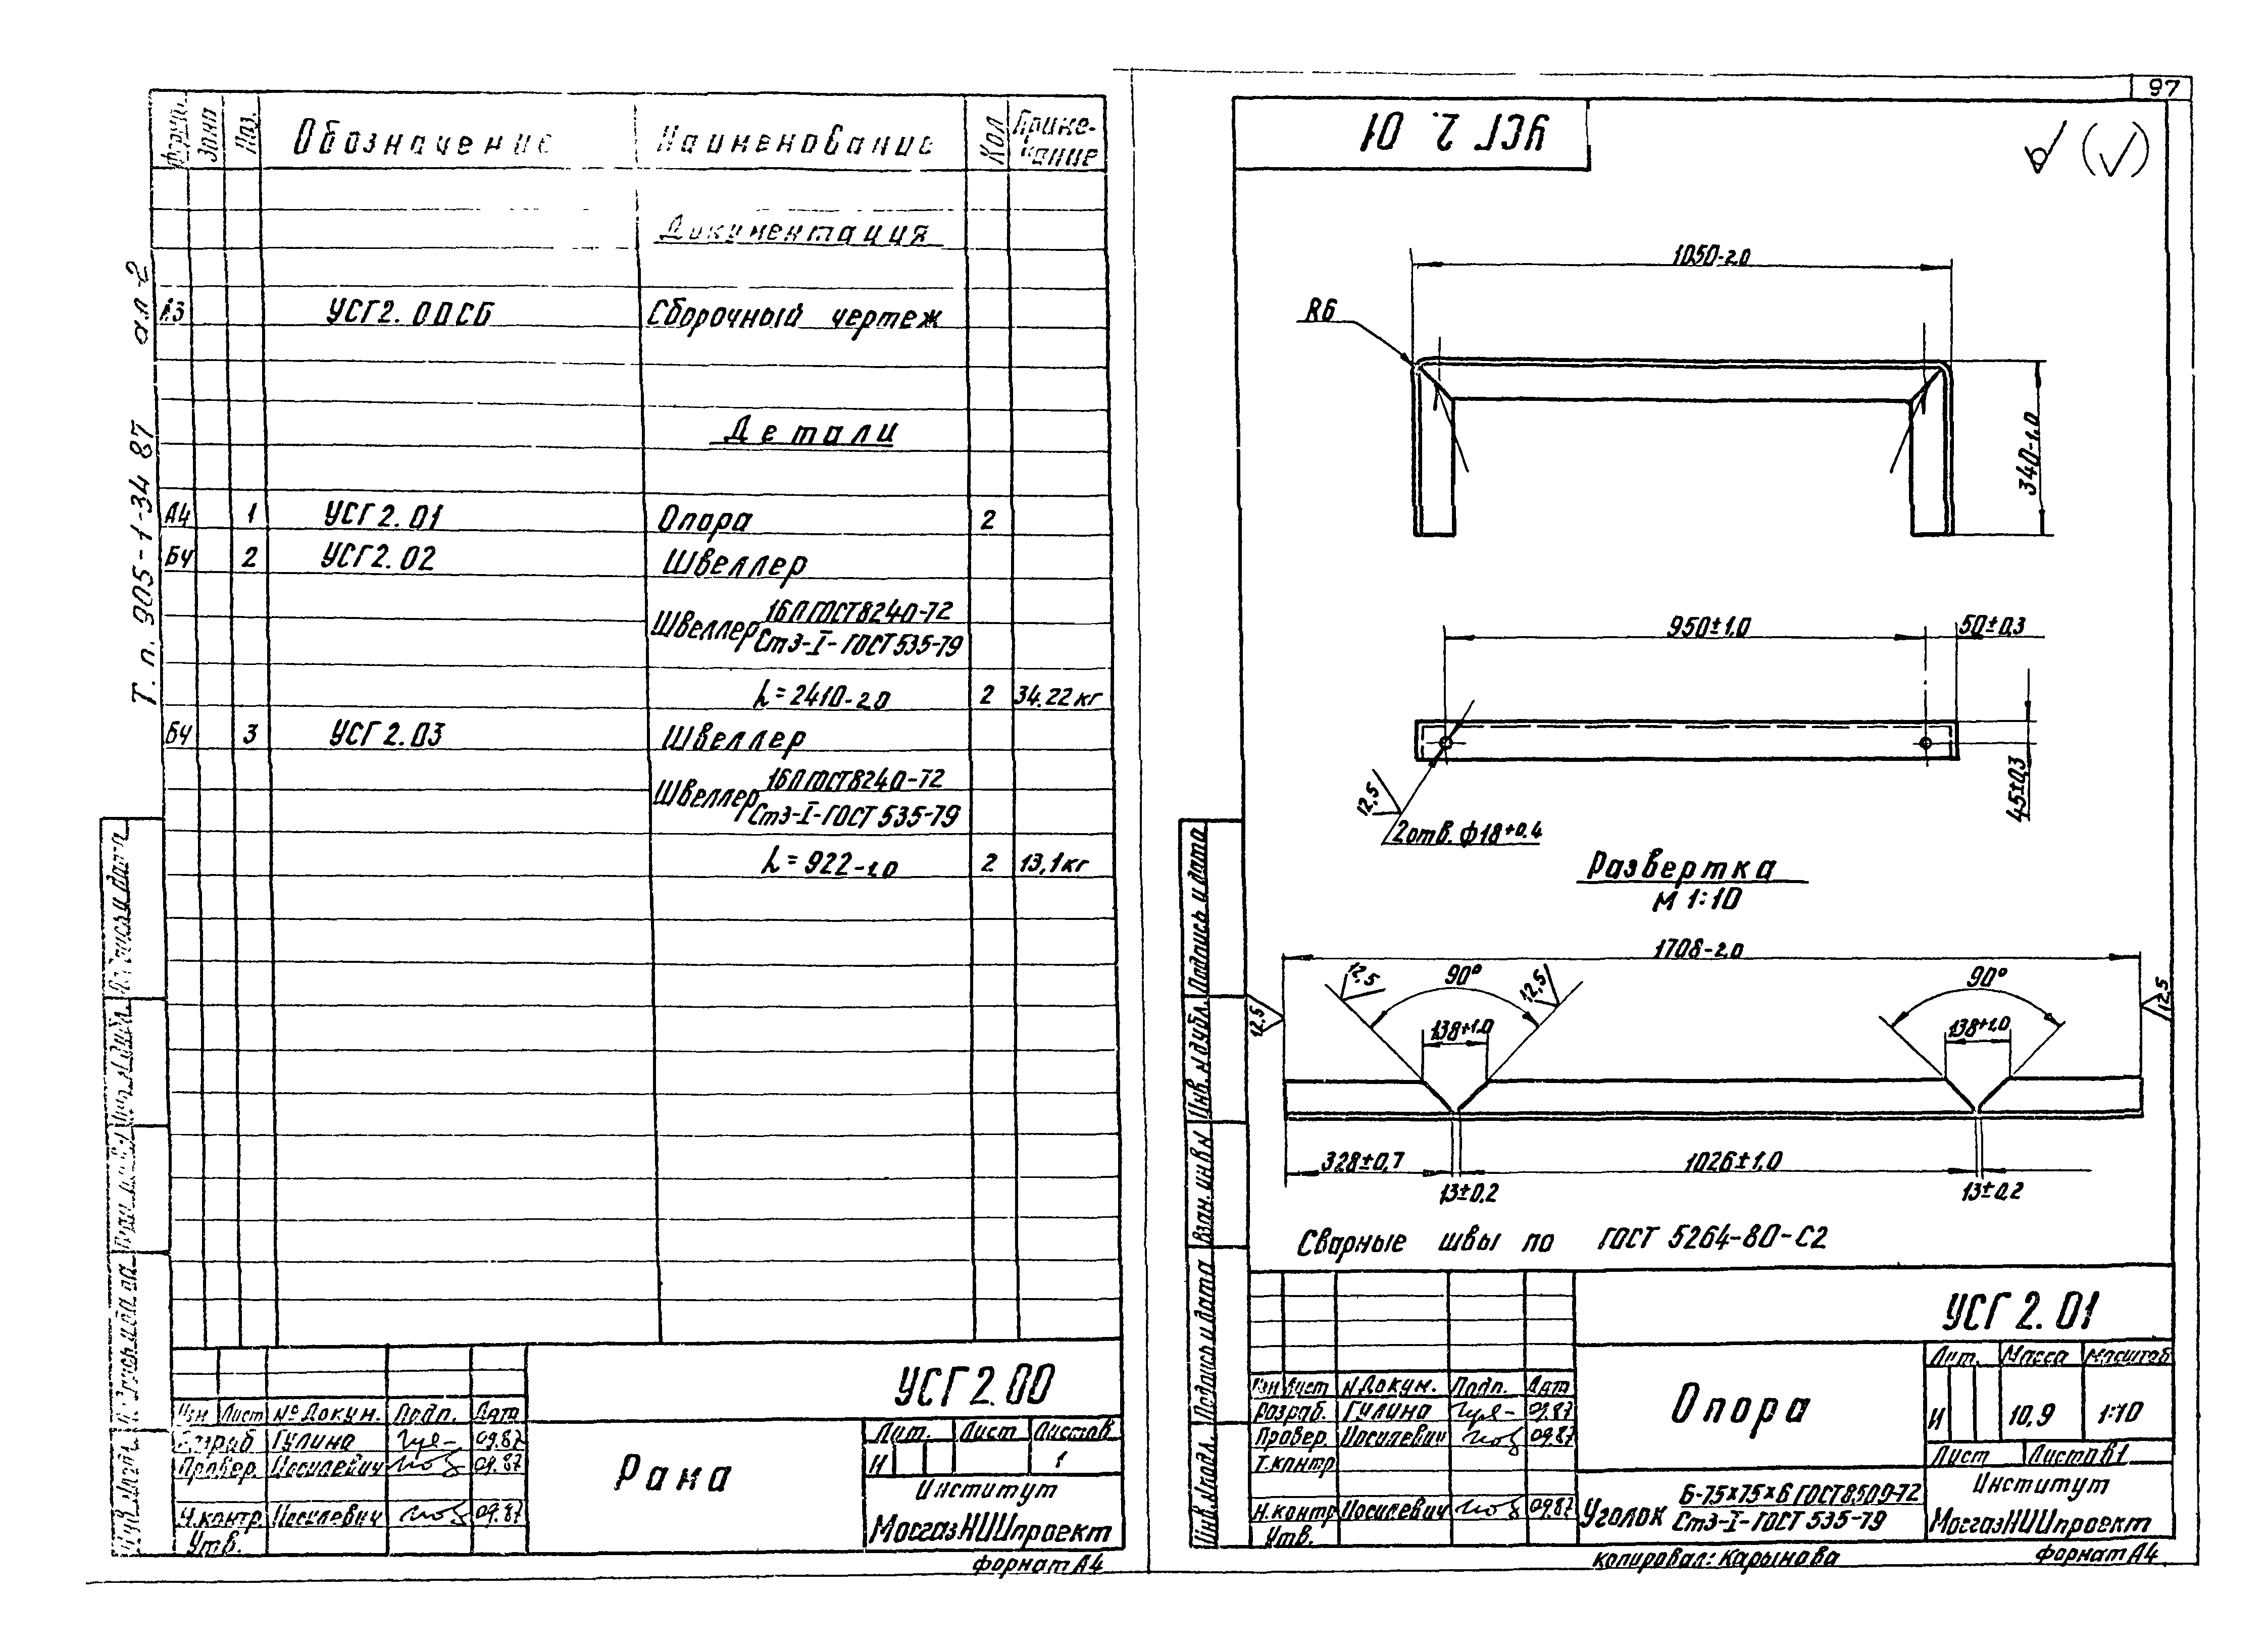 Форм. Зона Поз. Обозначение Наименование Кол Приме-
чание
Документация
А3 УСГ2.00СБ Сборочный чертеж
Детали
А4 1 УСГ2.01 Опора 2
БЧ 2 УСГ2.02 Швеллер
Швеллер 16П ГОСТ 8240-72
Ст3-I-ГОСТ 535-79
L=2410-2.0 2 34.22кг
БЧ 3 УСГ2.03 Швеллер
Швеллер 16П ГОСТ 8240-72
Ст3-I-ГОСТ 535-79
L=922-1.0 2 13,1кг
Т.п. 905-1-34 87 ал-2
УСГ2.00
Изм Лист №Докум. Подп. Дата
Разраб. Гулина 09.87
Провер. Иосилевич 09.87
Н.контр. Иосилевич 09.87
Утв.
Рама
Лит. Лист Листов
И 1
Институт
МосгазНИИпроект
формат А4
97
УСГ 2. 01
1050-2.0
R6
340-1.0
950±1.0
50±0,3
45±0,3
12,5
2отв. ф18+0.4
Развертка
М 1:10
1708-2.0
12,5 90° 12,5 90°
12,5 138+1.0 138+1.0 12,5
328±0,7 1026±1.0
13±0,2 13±0,2
Сварные швы по ГОСТ 5264-80-С2
Подпись и дата
Инв. № дубл.
Взам. инв №
Подпись и дата
Инв. № подл.
УСГ 2.01
Изм Лист №Докум. Подп. Дата
Разраб. Гулина 09.87
Провер. Иосилевич 09.87
Т.контр
Н.контр Иосилевич 09.87
Утв.
Опора
Лит. Масса Масштаб
И 10,9 1:10
Лист Листов 1
Уголок Б-75×75×6 ГОСТ 8509-72
Ст3-I-ГОСТ 535-79
Институт
МосгазНИИпроект
копировал: Карынова
формат А4